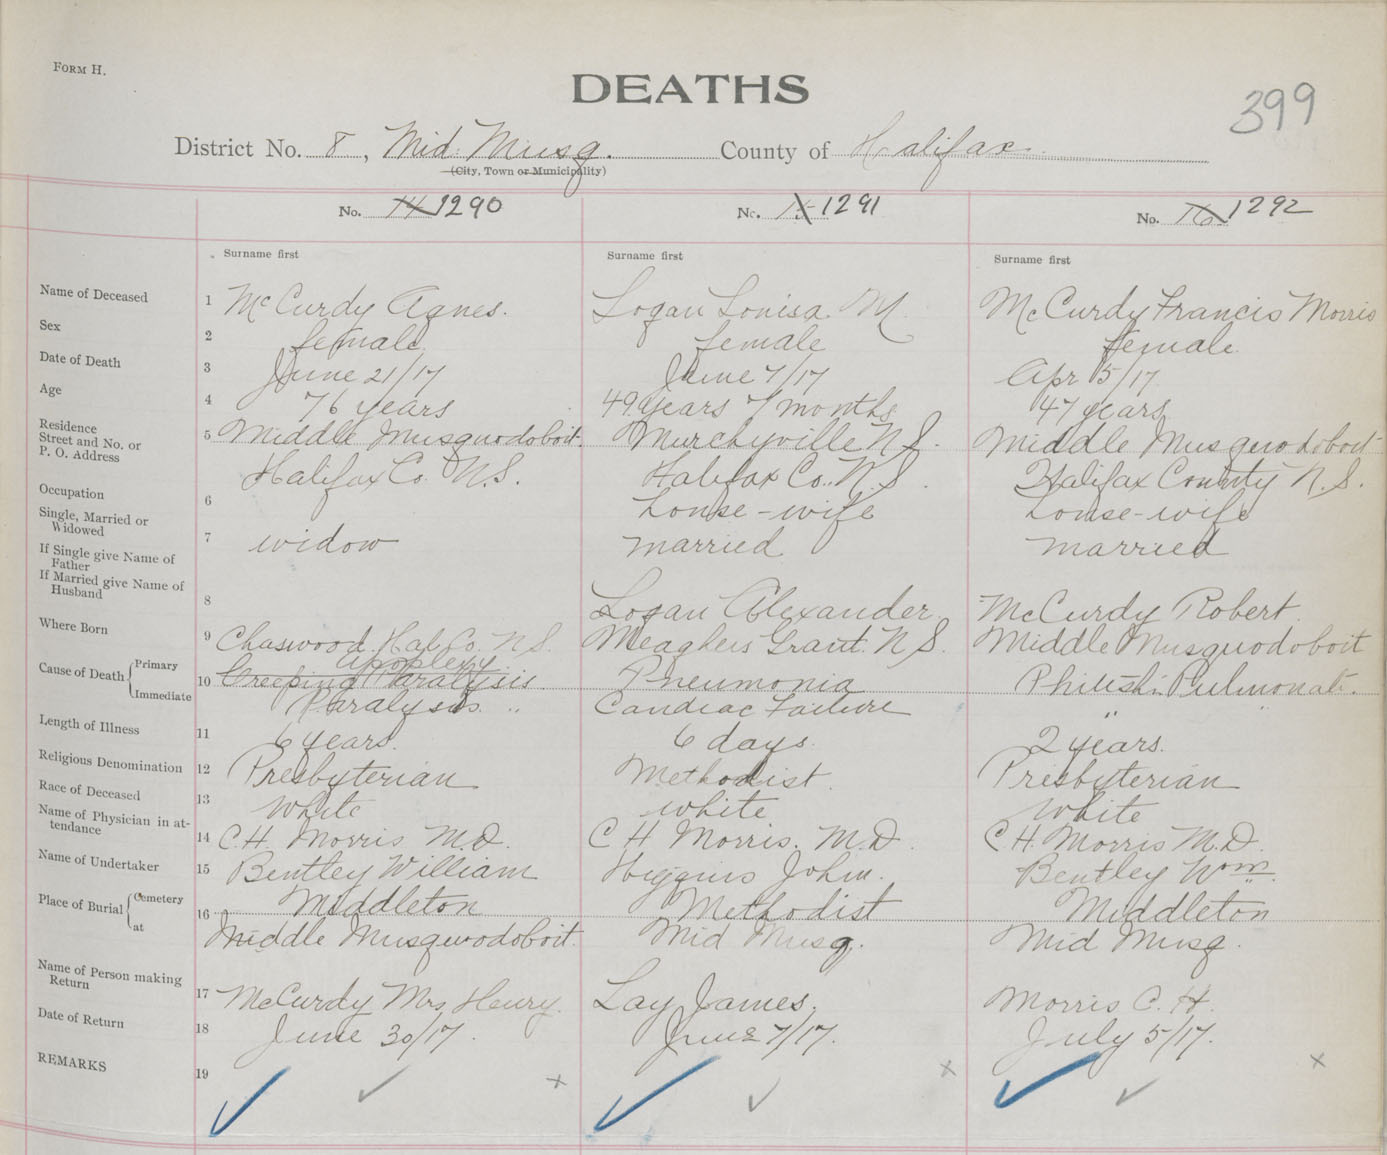 FORM H.
DEATHS
399
District No. 8, Mid. Musq. County of Halifax
(City, Town or Municipality)
No. 14 1290 No. 15 1291 No. 16 1292
Surname first Surname first Surname first
Name of Deceased 1 McCurdy Agnes. Logan Louisa. M. McCurdy Francis Morris
Sex 2 female female female
Date of Death 3 June 21/17 June 7/17 Apr 5/17
Age 4 76 years 49 years 7 months 47 years
Residence
Street and No. or
P. O. Address 5 Middle Musquodoboit. Murchyville N.S. Middle Musquodoboit
Halifax Co. N.S. Halifax Co. N.S. Halifax County N.S.
Occupation 6 House-wife House-wife
Single, Married or
Widowed 7 widow married married
If Single give Name of
Father
If Married give Name of
Husband 8 Logan Alexander McCurdy Robert
Where Born 9 Chaswood Hal. Co. N.S. Meaghers Grant. N.S. Middle Musquodoboit
apoplexy
Cause of Death Primary 10 Creeping Paralysis Pneumonia Phthisis Pulmonalis.
Immediate Paralysis " Cardiac Failure "
Length of Illness 11 6 years. 6 days. 2 years.
Religious Denomination 12 Presbyterian Methodist Presbyterian
Race of Deceased 13 White white White
Name of Physician in at-
tendance 14 C.H. Morris M.D. C H Morris. M.D. C H Morris M.D.
Name of Undertaker 15 Bentley William Higgins John. Bentley Wm.
Place of Burial Cemetery 16 Middleton Methodist Middleton
at Middle Musquodoboit. Mid Musq. Mid Musq.
Name of Person making
Return 17 McCurdy Mrs Henry. Lay James. Morris C. H.
Date of Return 18 June 30/17. June 7/17. July 5/17.
REMARKS 19